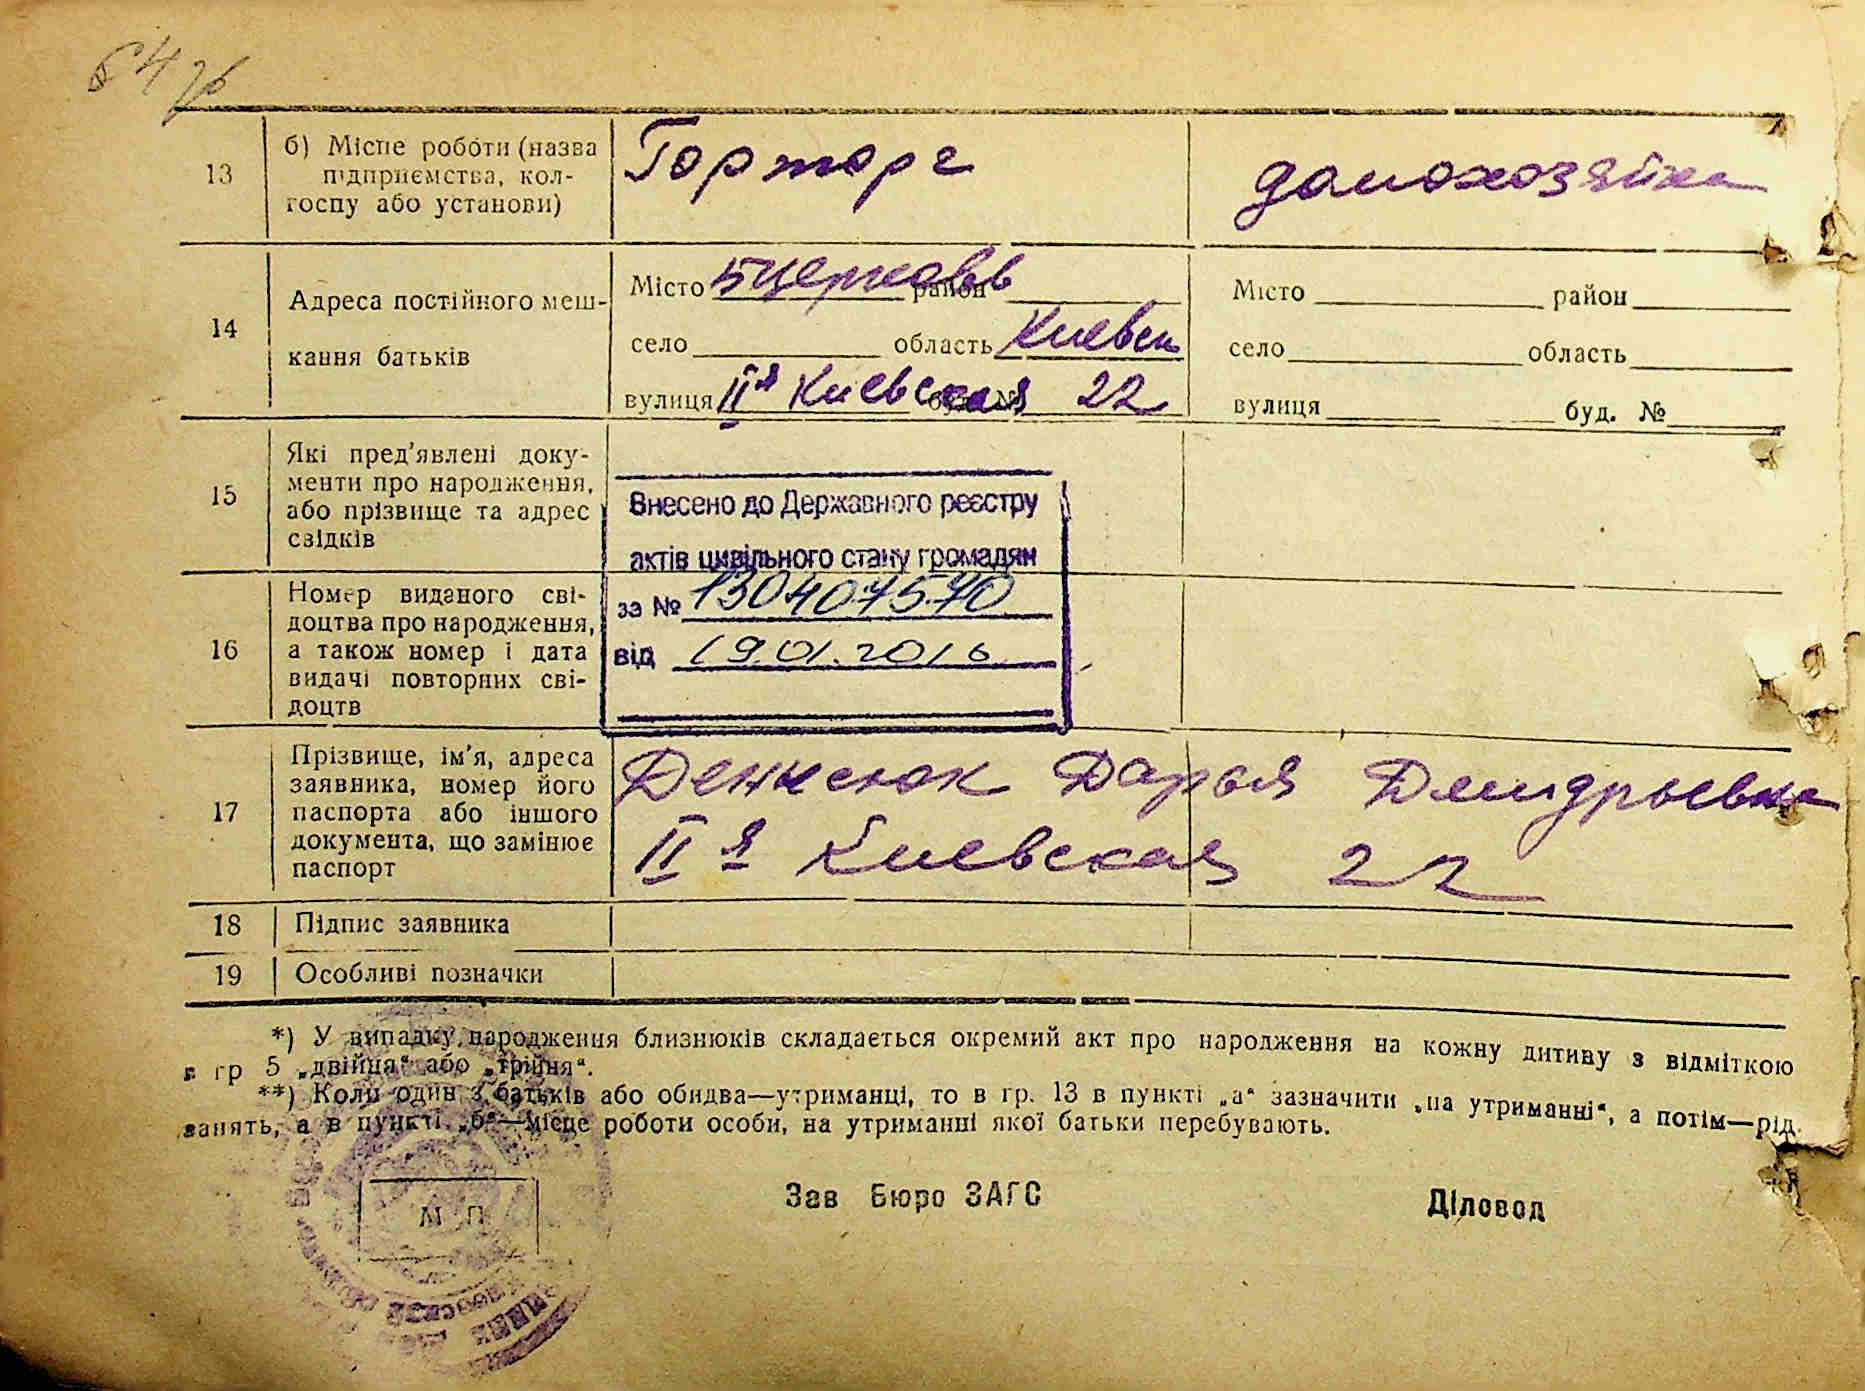 13
б) Місце роботи (назва
підприємства, кол-
госпу або установи)
Горторг
домохозяйка
14
Адреса постійного меш-
кання батьків
Місто Бцерковь район
село область Киевск
вулиця ІІя Киевская буд. № 22
Місто район
село область
вулиця буд. №
15
Які пред'явлені доку-
менти про народження,
або прізвище та адрес
свідків
Внесено до Державного реєстру
актів цивільного стану громадян
за № 13040757 0
від 19.01.2016
16
Номер виданого сві-
доцтва про народження,
а також номер і дата
видачі повторних сві-
доцтв
17
Прізвище, ім'я, адреса
заявника, номер його
паспорта або іншого
документа, що замінює
паспорт
Денисюк Дарья Дмидрьевна
ІІя Киевская 22
18
Підпис заявника
19
Особливі позначки
*) У випадку народження близнюків складається окремий акт про народження на кожну дитину з відміткою
в гр 5 „двійня“ або „трійня“.
**) Коли один з батьків або обидва—утриманці, то в гр. 13 в пункті „а“ зазначити „на утриманні“, а потім—рід
занять, а в пункті „б“—місце роботи особи, на утриманні якої батьки перебувають.
М П
Зав Бюро ЗАГС
Діловод